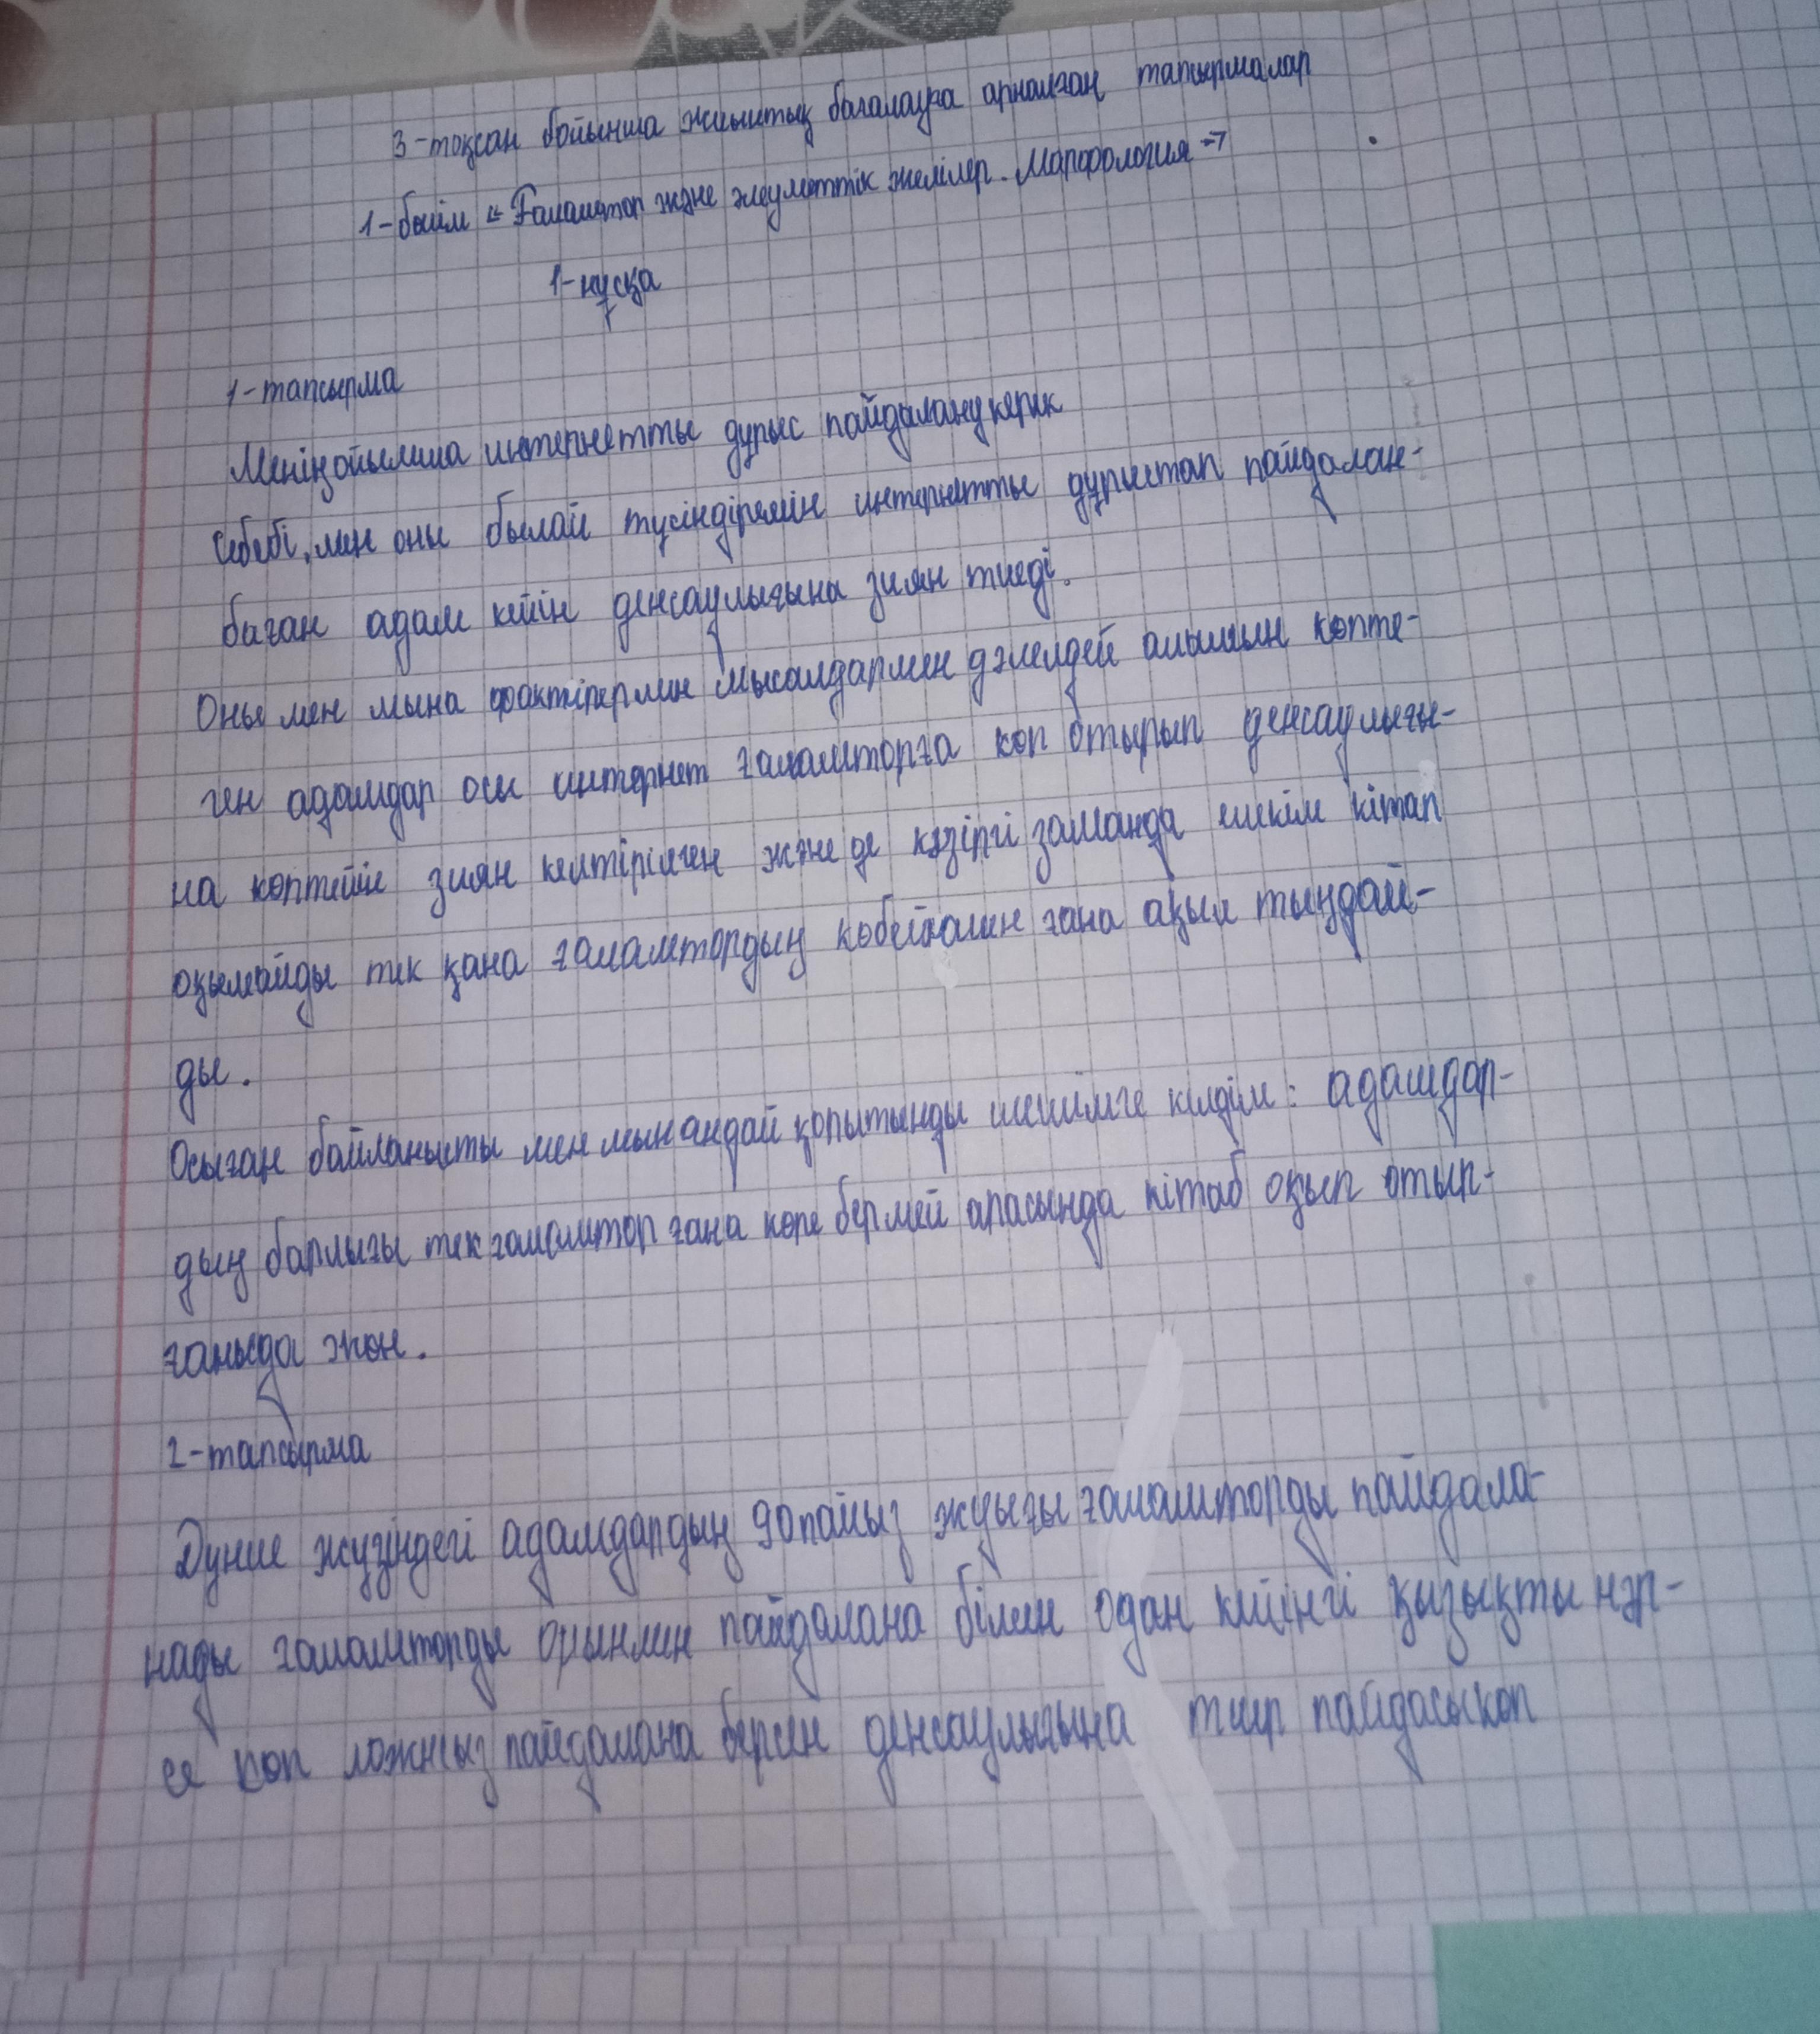 3-тоқсан бойынша жиынтық бағалауға арналған тапсырмалар
1-бөлім «Ғаламтор және әлеуметтік желілер. Морфология»
1-нұсқа
1-тапсырма
Менің ойымша интернетты дұрыс пайдалану керек
Себебі, мен оны былай түсіндіремін интернетты дұрыстап пайдалан-
баған адам кейін денсаулығына зиян тиеді.
Оны мен мына фактілермен мысалдармен дәлелдей аламын көпте-
ген адамдар осы интернет ғаламторға көп отырып денсаулығы-
на көптеген зиян келтірілген және де кәзіргі заманда ешкім кітап
оқымайды тек қана ғаламтордың көбейгенін ғана ақыл тыңдай-
ды.
Осыған байланысты мен мынандай қорытынды шешімге келдім: адамдар-
дың барлығы тек ғаламтор ғана көре бермей арасында кітаб оқып отыр-
ғаныда жөн.
2-тапсырма
Дүние жүзіндегі адамдардың 90 пайыз жуығы ғаламторды пайдала-
нады ғаламторды орынмен пайдалана білсең одан кейінгі қызықты нәр-
се көп пайдалана берсең денсаулығына тиер пайдасы көп